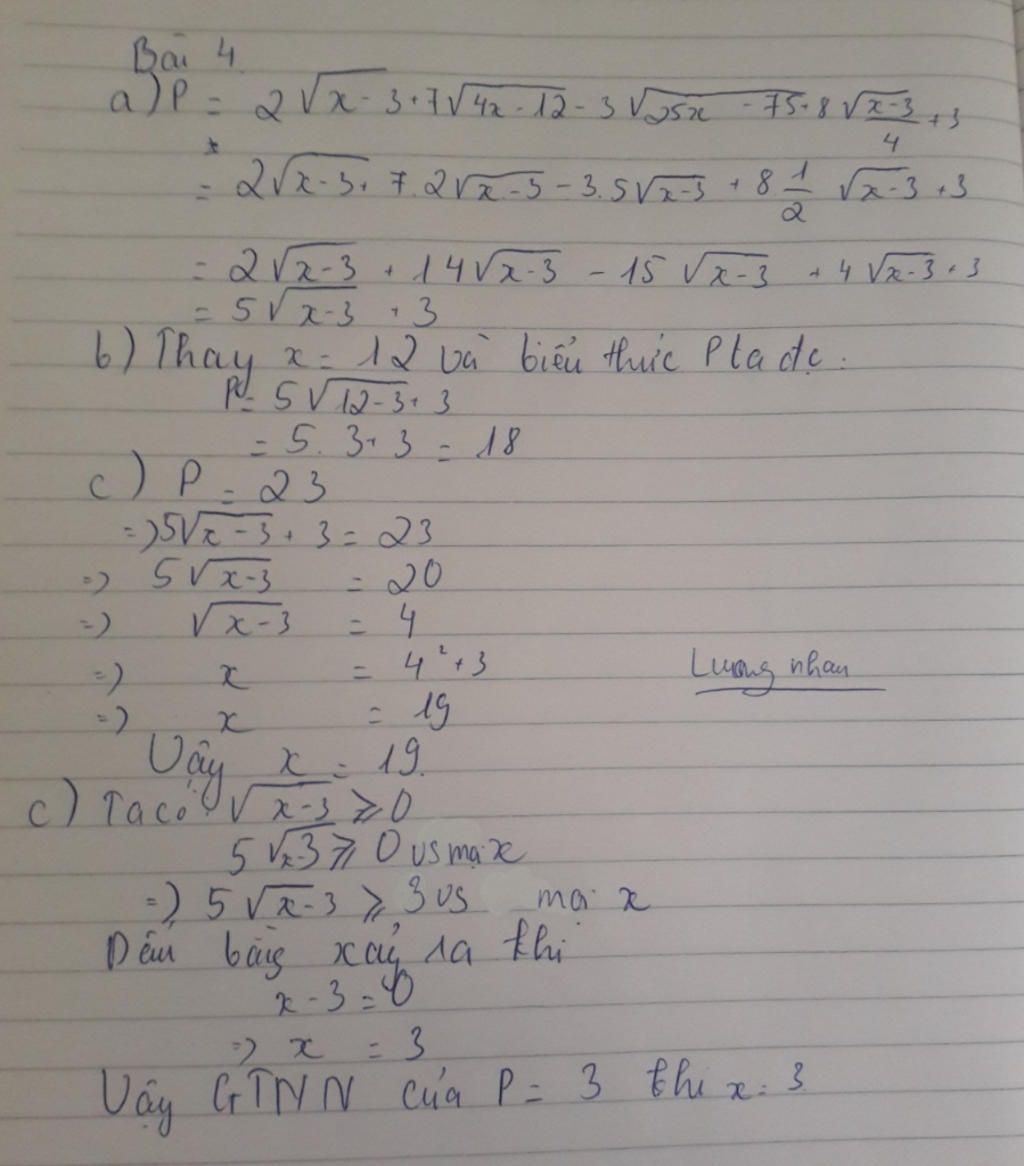 Bài 4
a) P = 2√(x-3) + 7√(4x-12) - 3√(25x - 75) + 8√((x-3)/4) + 3
= 2√(x-3) + 7.2√(x-3) - 3.5√(x-3) + 8 1/2 √(x-3) + 3
= 2√(x-3) + 14√(x-3) - 15√(x-3) + 4√(x-3) + 3
= 5√(x-3) + 3
b) Thay x = 12 và biểu thức P ta đc:
P = 5√(12-3) + 3
= 5. 3 + 3 = 18
c) P = 23
=> 5√(x-3) + 3 = 23
=> 5√(x-3) = 20
=> √(x-3) = 4
=> x = 4² + 3
Lương nhan
=> x = 19
Vậy x = 19.
c) Ta có √(x-3) ⩾ 0
5√(x-3) ⩾ 0 vs mọi x
=> 5√(x-3) ⩾ 3 vs mọi x
Dấu bằng xảy ra khi
x - 3 = 0
=> x = 3
Vậy GTNN của P = 3 khi x = 3